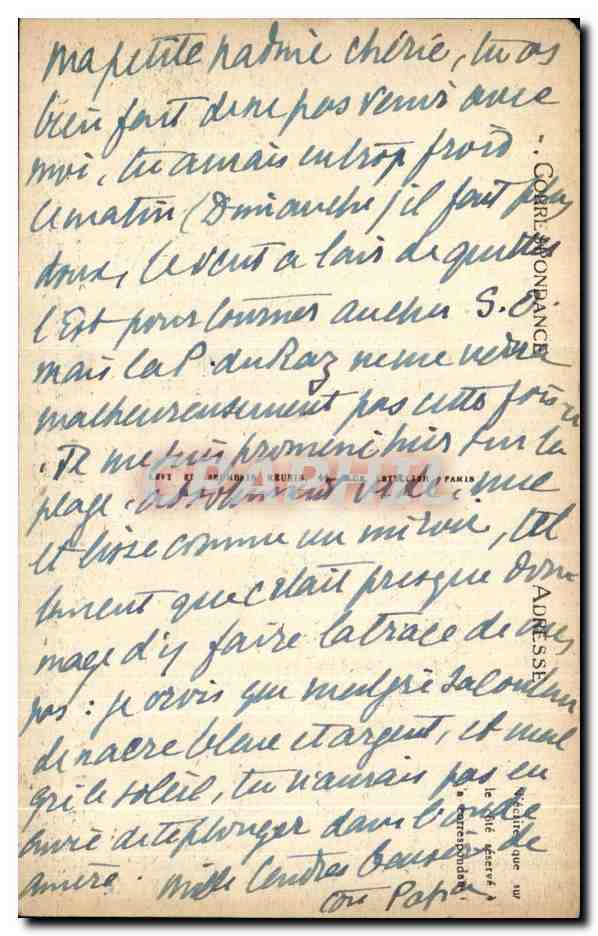 ma petite Nadine chérie, tu as
bien fait de ne pas venir avec
moi, tu aurais eu trop froid
le matin (Dimanche) il fait plus
doux, le vent a l'air de quitter
l'Est pour tourner au S. E.
mais la P. du Raz ne me verra
malheureusement pas cette fois ci
. Je me suis promené hier sur la
plage, absolument vide, nue
et lisse comme un miroir, tel
lement que c'était presque dom
mage d'y faire la trace de mes
pas : je crois que malgré sa couleur
de nacre blanc et argent, et mal
gré le soleil, tu n'aurais pas eu
envie de te plonger dans l'onde
amère. mille tendres baisers de
ton Papa
CORRESPONDANCE
ADRESSE
N'écrire que sur
le côté réservé à
la correspondance
LEVY ET NEURDEIN REUNIS, 44, RUE LETELLIER, PARIS
CPARAMA